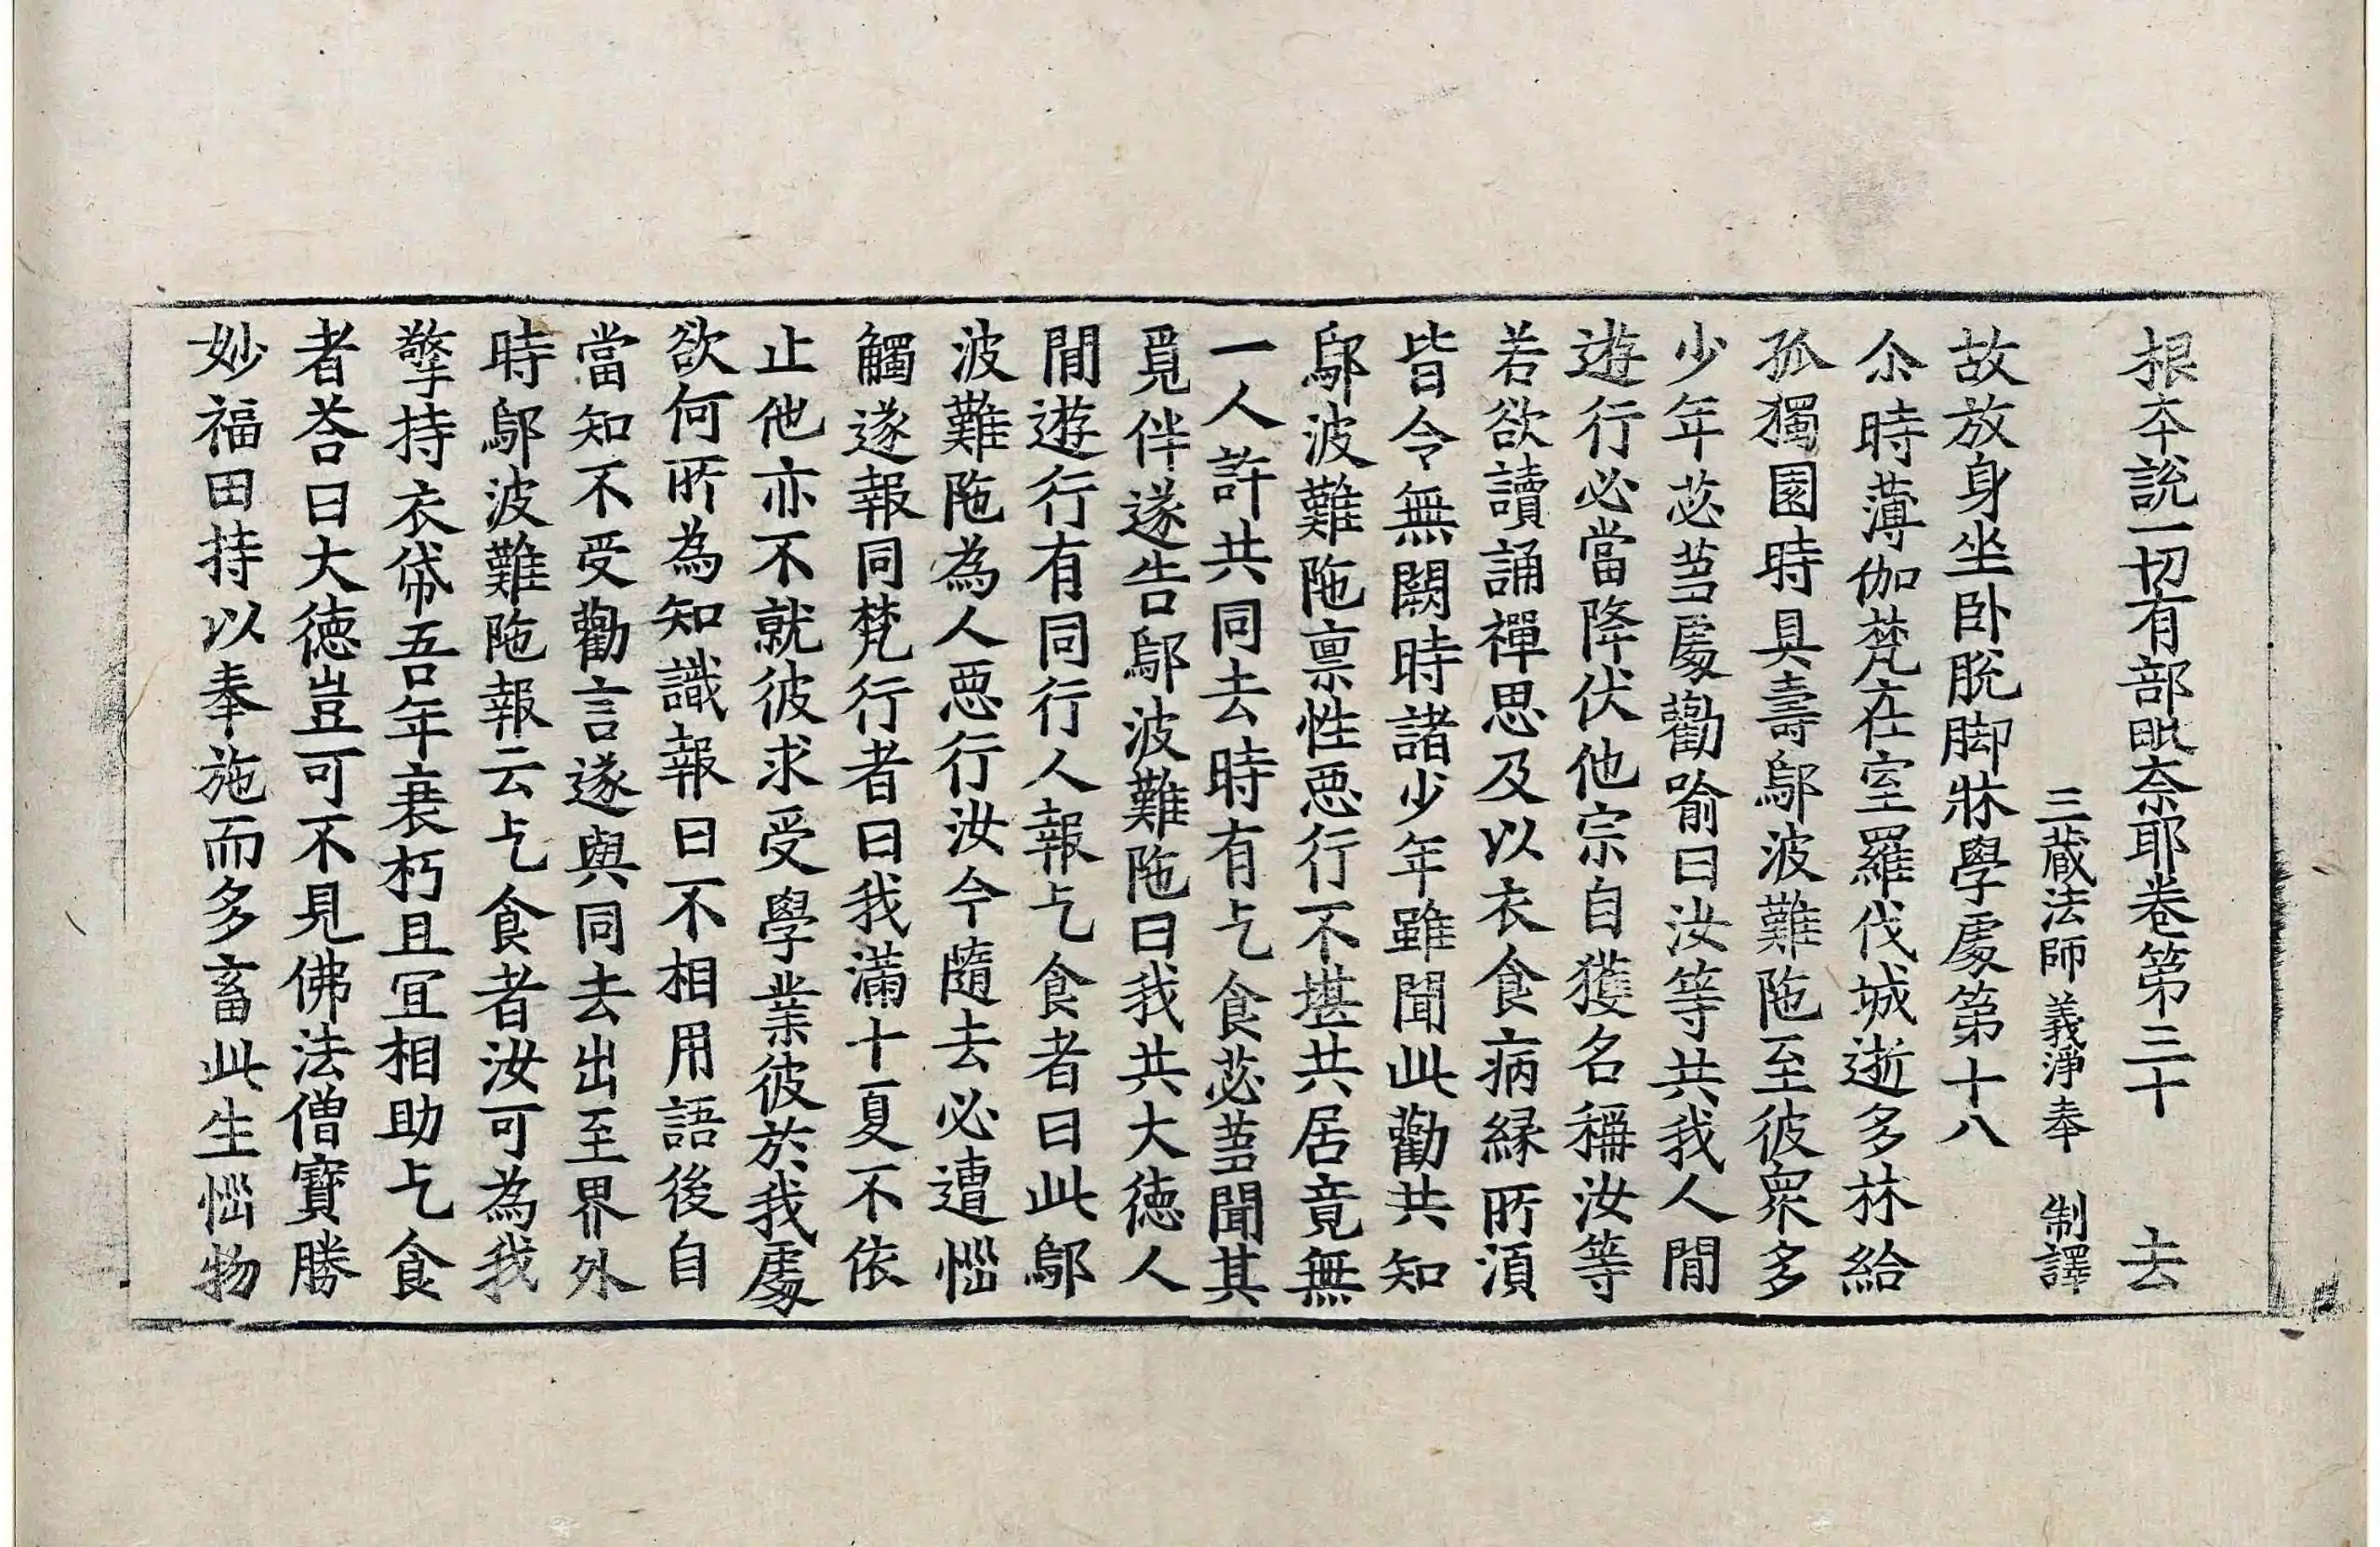 根夲說一切有部毗奈耶卷第三十 去
三蔵法師 義淨奉 制譯
故放身坐卧脫脚牀學處第十八
尒時薄伽梵在室羅伐城逝多林給
孤獨園時具壽鄔波難陁至彼衆多
少年苾蒭處勸喻曰汝等共我人閒
遊行必當降伏他宗自獲名稱汝等
若欲讀誦禪思及以衣食病緣所湏
皆令無闕時諸少年雖聞此勸共知
鄔波難陁禀性惡行不堪共居竟無
一人許共同去時有乞食苾蒭聞其
覓伴遂告鄔波難陁曰我共大德人
閒遊行有同行人報乞食者曰此鄔
波難陁為人惡行汝今隨去必遭惱
觸遂報同梵行者曰我滿十夏不依
止他亦不就彼求受學業彼於我處
欲何所為知識報曰不相用語後自
當知不受勸言遂與同去出至界外
時鄔波難陁報云乞食者汝可為我
擎持衣帒吾年衰朽且宜相助乞食
者荅曰大德豈可不見佛法僧寶勝
妙福田持以奉施而多畜此生惱物